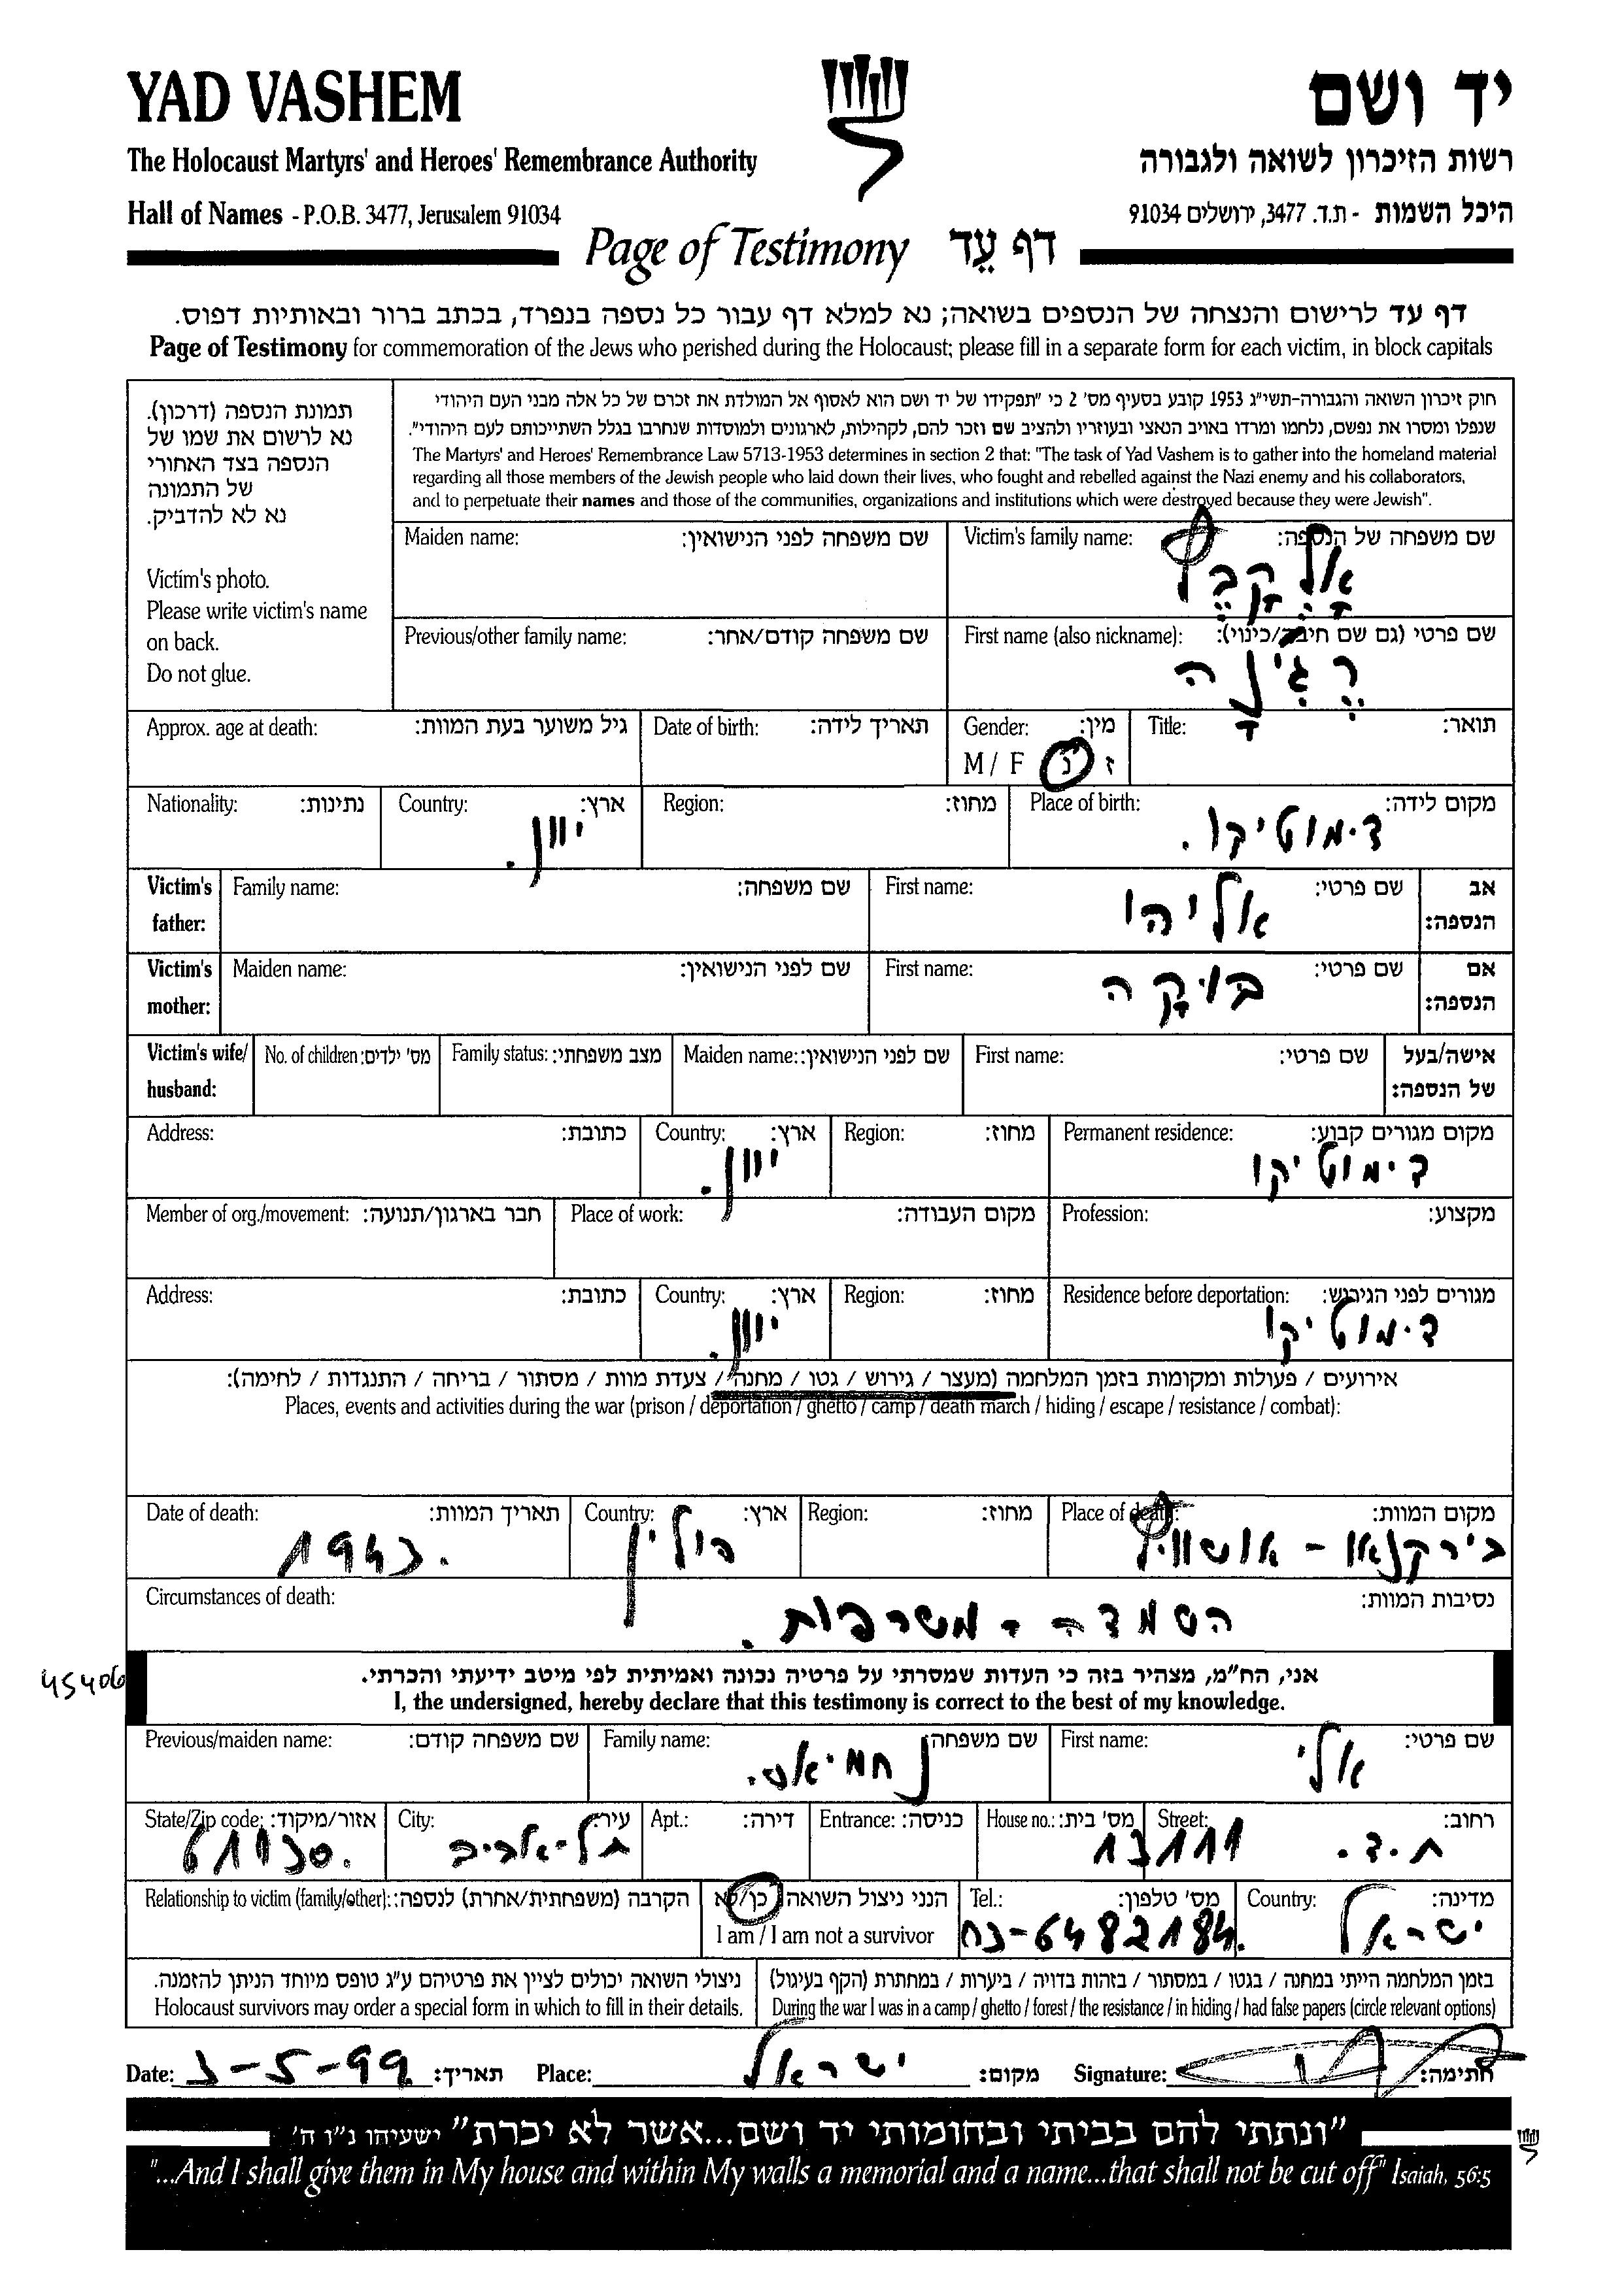 YAD VASHEM
יד ושם
The Holocaust Martyrs' and Heroes' Remembrance Authority
רשות הזיכרון לשואה ולגבורה
Hall of Names - P.O.B. 3477, Jerusalem 91034
היכל השמות - ת.ד. 3477, ירושלים 91034
Page of Testimony דף עֵד
דף עד לרישום והנצחה של הנספים בשואה; נא למלא דף עבור כל נספה בנפרד, בכתב ברור ובאותיות דפוס.
Page of Testimony for commemoration of the Jews who perished during the Holocaust; please fill in a separate form for each victim, in block capitals
תמונת הנספה (דרכון).
נא לרשום את שמו של
הנספה בצד האחורי
של התמונה
נא לא להדביק.
Victim's photo.
Please write victim's name
on back.
Do not glue.
חוק זיכרון השואה והגבורה-תשי"ג 1953 קובע בסעיף מס' 2 כי "תפקידו של יד ושם הוא לאסוף אל המולדת את זכרם של כל אלה מבני העם היהודי
שנפלו ומסרו את נפשם, נלחמו ומרדו באויב הנאצי ובעוזריו ולהציב שם וזכר להם, לקהילות, לארגונים ולמוסדות שנחרבו בגלל השתייכותם לעם היהודי".
The Martyrs' and Heroes' Remembrance Law 5713-1953 determines in section 2 that: "The task of Yad Vashem is to gather into the homeland material
regarding all those members of the Jewish people who laid down their lives, who fought and rebelled against the Nazi enemy and his collaborators,
and to perpetuate their names and those of the communities, organizations and institutions which were destroyed because they were Jewish".
Victim's family name: שם משפחה של הנספה:
Maiden name: שם משפחה לפני הנישואין:
First name (also nickname): שם פרטי (גם שם חיבה/כינוי):
רג'ינה
Previous/other family name: שם משפחה קודם/אחר:
Title: תואר:
Gender: מין:
M / F ז נ
Date of birth: תאריך לידה:
Approx. age at death: גיל משוער בעת המוות:
Place of birth: מקום לידה:
דימוטיקו.
Region: מחוז:
Country: ארץ:
יוון.
Nationality: נתינות:
אב הנספה:
First name: שם פרטי:
אליהו
Family name: שם משפחה:
Victim's father:
אם הנספה:
First name: שם פרטי:
בוקה
Maiden name: שם לפני הנישואין:
Victim's mother:
אישה/בעל של הנספה:
First name: שם פרטי:
Maiden name: שם לפני הנישואין:
Family status: מצב משפחתי:
No. of children: מס' ילדים:
Victim's wife/ husband:
Permanent residence: מקום מגורים קבוע:
דימוטיקו
Region: מחוז:
Country: ארץ:
יוון.
Address: כתובת:
Profession: מקצוע:
Place of work: מקום העבודה:
Member of org./movement: חבר בארגון/תנועה:
Residence before deportation: מגורים לפני הגירוש:
דימוטיקו
Region: מחוז:
Country: ארץ:
יוון.
Address: כתובת:
אירועים / פעולות ומקומות בזמן המלחמה (מעצר / גירוש / גטו / מחנה / צעדת מוות / מסתור / בריחה / התנגדות / לחימה):
Places, events and activities during the war (prison / deportation / ghetto / camp / death march / hiding / escape / resistance / combat):
Place of death: מקום המוות:
בירקנאו - אושוויץ
Region: מחוז:
Country: ארץ:
פולין
Date of death: תאריך המוות:
1943.
Circumstances of death: נסיבות המוות:
השמדה - משרפות.
45406
אני, הח"מ, מצהיר בזה כי העדות שמסרתי על פרטיה נכונה ואמיתית לפי מיטב ידיעתי והכרתי.
I, the undersigned, hereby declare that this testimony is correct to the best of my knowledge.
First name: שם פרטי:
אלי
Family name: שם משפחה:
Previous/maiden name: שם משפחה קודם:
Street: רחוב:
ת.ד.
House no.: מס' בית:
13111
Entrance: כניסה:
Apt.: דירה:
City: עיר:
תל-אביב
State/Zip code: אזור/מיקוד:
61130.
Country: מדינה:
ישראל
Tel.: מס' טלפון:
03-6482184.
הנני ניצול השואה כן/לא
I am / I am not a survivor
Relationship to victim (family/other): הקרבה (משפחתית/אחרת) לנספה:
בזמן המלחמה הייתי במחנה / בגטו / במסתור / בזהות בדויה / ביערות / במחתרת (הקף בעיגול)
During the war I was in a camp / ghetto / forest / the resistance / in hiding / had false papers (circle relevant options)
ניצולי השואה יכולים לציין את פרטיהם ע"ג טופס מיוחד הניתן להזמנה.
Holocaust survivors may order a special form in which to fill in their details.
Date: 3-5-99 תאריך: Place: ישראל מקום: Signature: חתימה:
"ונתתי להם בביתי ובחומותי יד ושם...אשר לא יכרת" ישעיהו נ"ו ה'
"...And I shall give them in My house and within My walls a memorial and a name...that shall not be cut off" Isaiah, 56:5